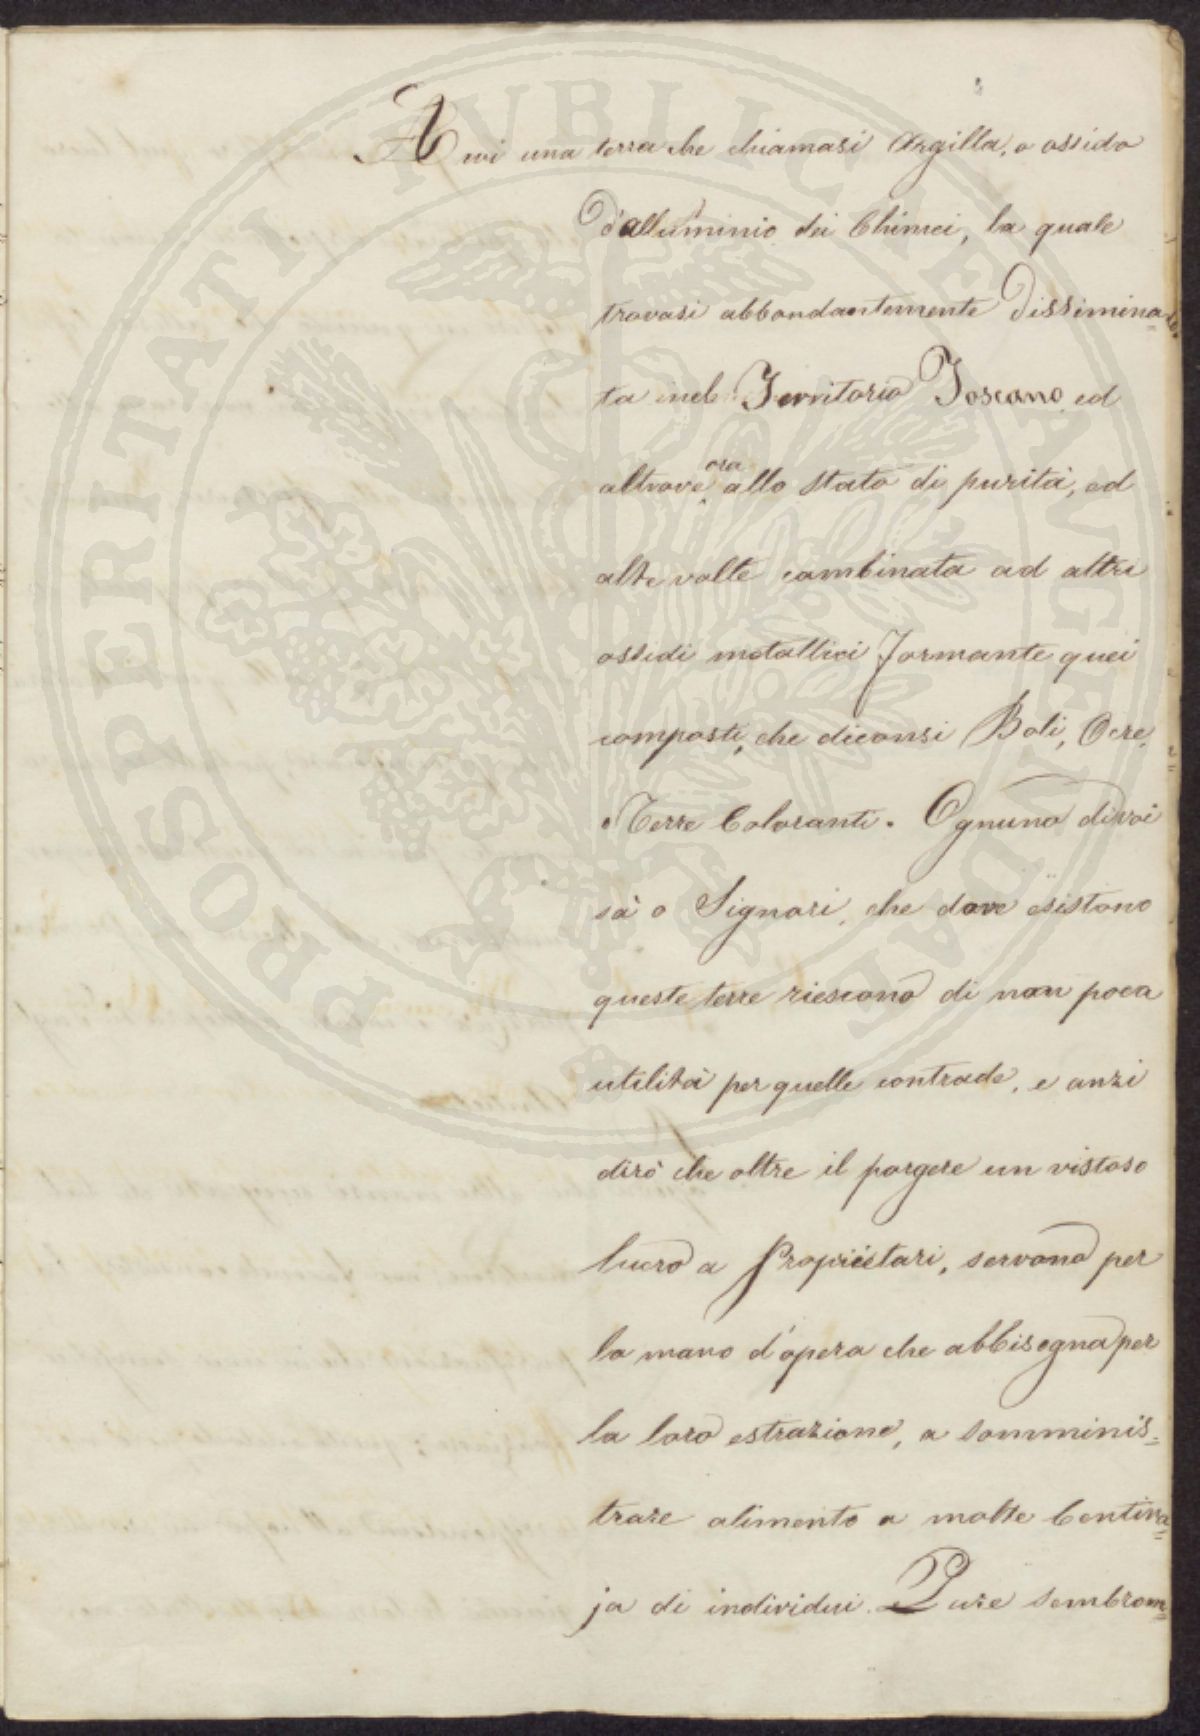 Avvi una terra che chiamasi Argilla, o ossido
d'alluminio dei Chimici, la quale
trovasi abbondantemente dissimina=
ta nel Territorio Toscano ed
altrove ora allo stato di purità, ed
altre volte combinata ad altri
ossidi metallici formante quei
composti, che diconsi Boli, Ocre,
e Terre Coloranti. Ognuno di voi
sà o Signori, che dove esistono
queste terre riescono di non poca
utilità per quelle contrade, e anzi
dirò che oltre il porgere un vistoso
lucro a Proprietari, servono per
la mano d'opera che abbisogna per
la loro estrazione, a somminis=
trare alimento a molte Centina=
ja di individui. Pure sembrom=
PROSPERITATI PVBLICAE AVGENDAE